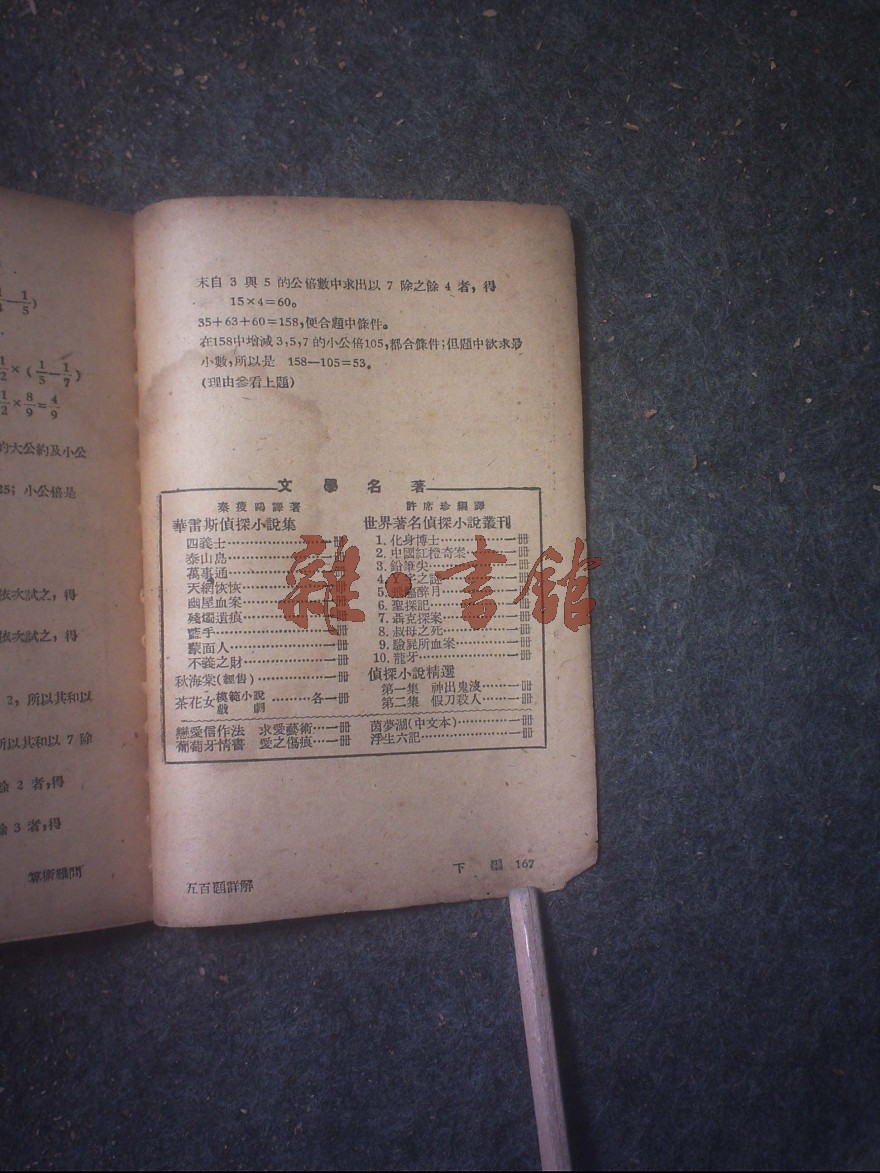 1/4 — 1/5)
1/2 × (1/5 — 1/7)
1/2 × 8/9 = 4/9
的大公約及小公
35; 小公倍是
依次試之, 得
依次試之, 得
2, 所以其和以
所以其和以 7 除
餘 2 者,得
餘 3 者,得
算術難問
末自 3 與 5 的公倍數中求出以 7 除之餘 4 者, 得
15×4=60。
35+63+60=158, 便合題中條件。
在158中增減3,5,7的小公倍105, 都合條件; 但題中欲求最
小數, 所以是 158—105=53。
(理由參看上題)
文學名著
秦瘦鷗譯著
華雷斯偵探小說集
四義士……一冊
泰山島……一冊
萬事通……一冊
天網恢恢……一冊
幽屋血案……一冊
殘燭遺痕……一冊
藍手……一冊
蒙面人……一冊
不義之財……一冊
秋海棠(經售)……一冊
茶花女 模範小說 戲劇……各一冊
許席珍編譯
世界著名偵探小說叢刊
1. 化身博士……一冊
2. 中國紅橙奇案……一冊
3. 鉛筆尖……一冊
4. 字之謎……一冊
5. 醉月……一冊
6. 聖探記……一冊
7. 聶克探案……一冊
8. 叔母之死……一冊
9. 驗屍所血案……一冊
10. 龍牙……一冊
偵探小說精選
第一集 神出鬼沒……一冊
第二集 假刀殺人……一冊
戀愛信作法 求愛藝術…一冊
葡萄牙情書 愛之傷痕…一冊
茵夢湖(中文本)……一冊
浮生六記……一冊
雜·書館
五百題詳解
下編 167